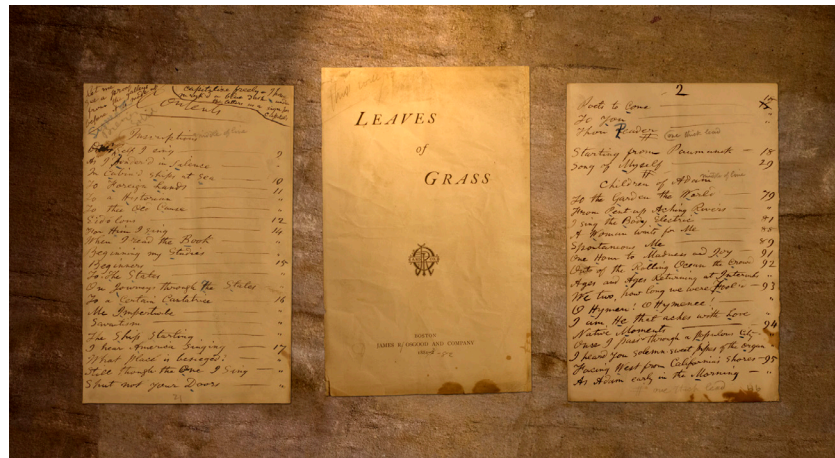 Contents
Inscriptions
One's Self I sing
As I Ponder'd in Silence 9
In Cabin'd Ships at Sea 10
To Foreign Lands 11
To a Historian "
To thee Old Cause "
Eidolons 12
For Him I Sing 14
When I read the Book "
Beginning my Studies "
Beginners 15
To The States "
On Journeys through the States "
To a Certain Cantatrice 16
Me Imperturbe "
Savantism "
The Ship Starting "
I hear America Singing 17
What Place is besieged? "
Still though the One I Sing "
Shut not your Doors "
LEAVES
of
GRASS
BOSTON
JAMES R. OSGOOD AND COMPANY
2
Poets to Come
To You "
Thou Reader "
Starting from Paumanok 18
Song of Myself 29
Children of Adam
To the Garden the World 79
From Pent-up Aching Rivers "
I Sing the Body Electric 81
A Woman waits for Me 88
Spontaneous Me 89
One Hour to Madness and Joy 91
Out of the Rolling Ocean the Crowd 92
Ages and Ages Returning at Intervals "
We two, how long we were Fool'd 93
O Hymen! O Hymenee! "
I am He that aches with Love "
Native Moments 94
Once I pass'd through a Populous City "
I heard You solemn sweet pipes of the Organ "
Facing West from California's Shores 95
As Adam early in the Morning "